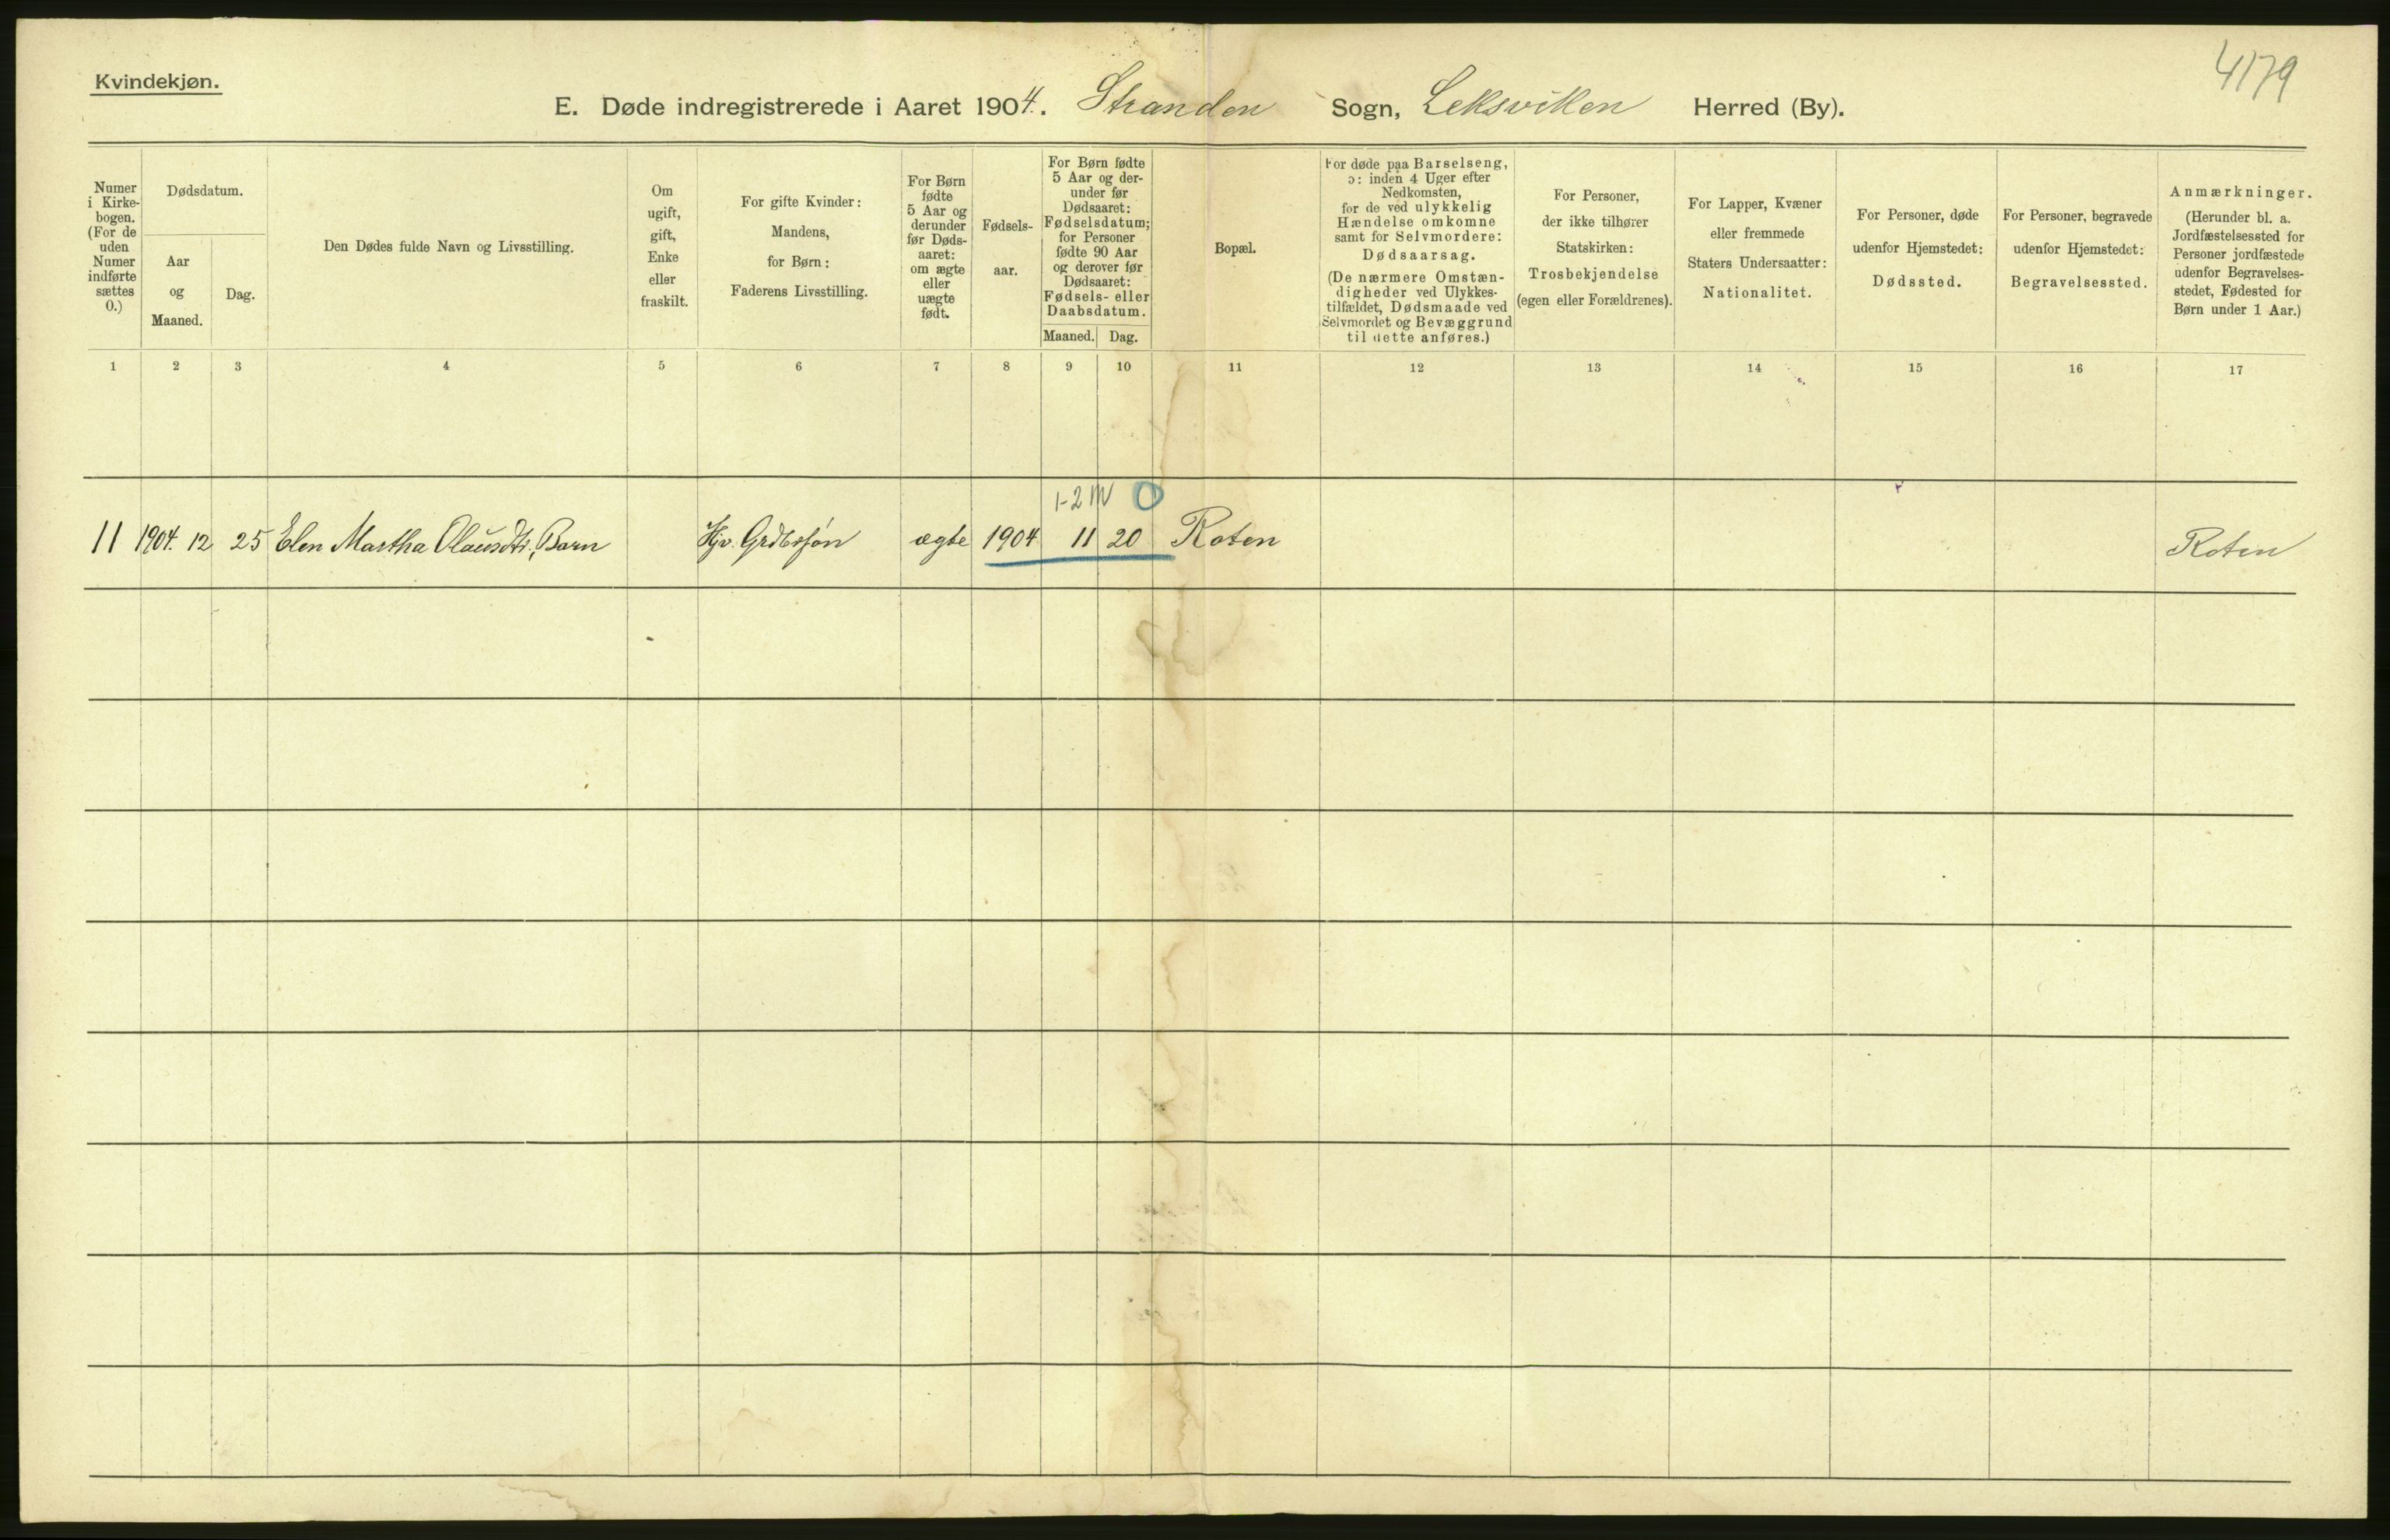 Kvindekjøn.
4179
E. Døde indregistrerede i Aaret 1904. Stranden Sogn, Leksviken Herred (By).
Numer
i Kirke-
bogen.
(For de
uden
Numer
indførte
sættes
0.)
Dødsdatum.
Aar
og
Maaned.
Dag.
Den Dødes fulde Navn og Livsstilling.
Om
ugift,
gift,
Enke
eller
fraskilt.
For gifte Kvinder:
Mandens,
for Børn:
Faderens Livsstilling.
For Børn
fødte
5 Aar og
derunder
før Døds-
aaret:
om ægte
eller
uægte
født.
Fødsels-
aar.
For Børn fødte
5 Aar og der-
under før
Dødsaaret:
Fødselsdatum;
for Personer
fødte 90 Aar
og derover før
Dødsaaret:
Fødsels- eller
Daabsdatum.
Maaned. Dag.
Bopæl.
For døde paa Barselseng,
ɔ: inden 4 Uger efter
Nedkomsten,
for de ved ulykkelig
Hændelse omkomne
samt for Selvmordere:
Dødsaarsag.
(De nærmere Omstæn-
digheder ved Ulykkes-
tilfældet, Dødsmaade ved
Selvmordet og Bevæggrund
til dette anføres.)
For Personer,
der ikke tilhører
Statskirken:
Trosbekjendelse
(egen eller Forældrenes).
For Lapper, Kvæner
eller fremmede
Staters Undersaatter:
Nationalitet.
For Personer, døde
udenfor Hjemstedet:
Dødssted.
For Personer, begravede
udenfor Hjemstedet:
Begravelsessted.
Anmærkninger.
(Herunder bl. a.
Jordfæstelsessted for
Personer jordfæstede
udenfor Begravelses-
stedet, Fødested for
Børn under 1 Aar.)
1 2 3 4 5 6 7 8 9 10 11 12 13 14 15 16 17
1-2 M 0
11 1904. 12 25 Elen Martha Olausdtr., Barn Hjv. Grdbrsøn ægte 1904 11 20 Roten Roten